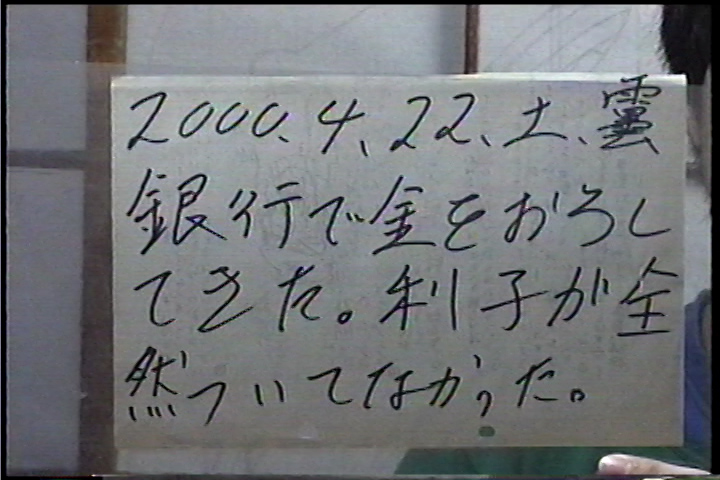 2000、4、22、土、雲
銀行で金をおろし
てきた。利子が全
然ついてなかった。